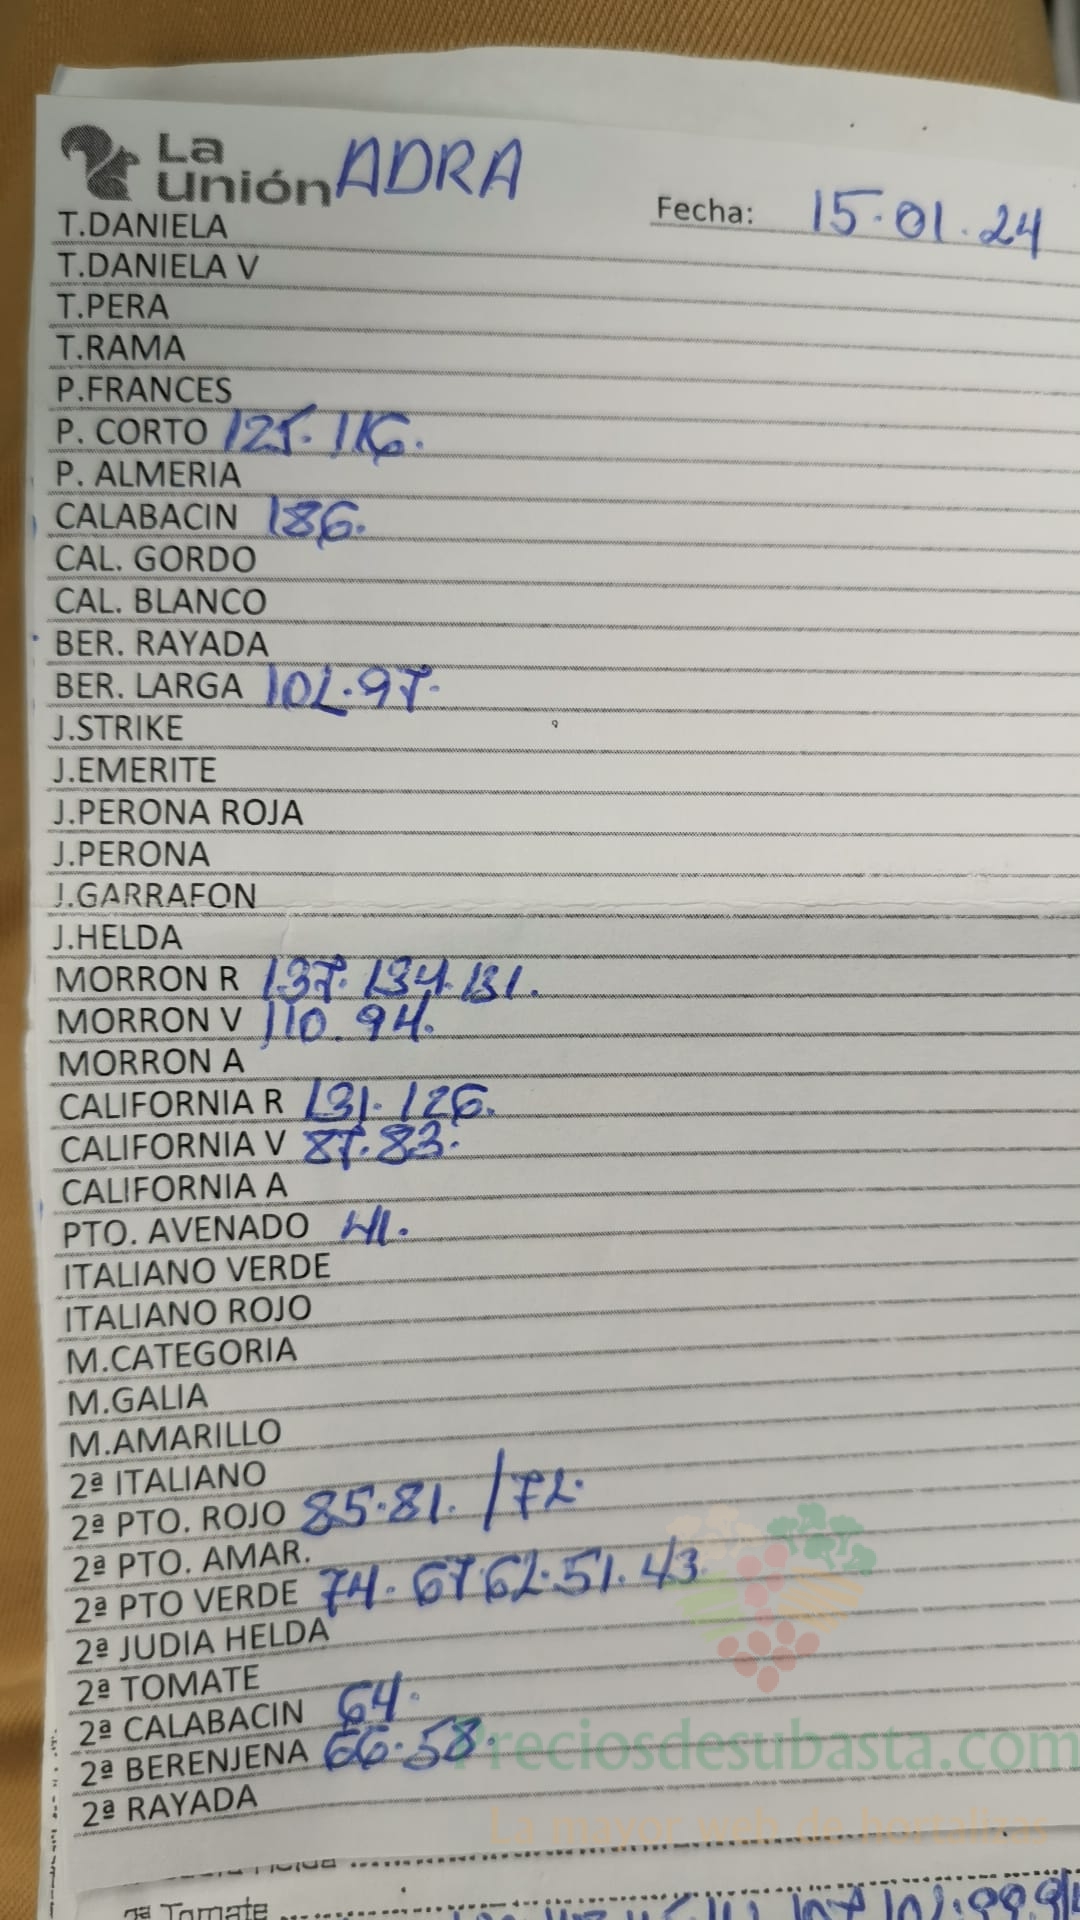 La
unión ADRA
Fecha: 15.01.24
T.DANIELA
T.DANIELA V
T.PERA
T.RAMA
P.FRANCES
P. CORTO 125. 116.
P. ALMERIA
CALABACIN 186.
CAL. GORDO
CAL. BLANCO
BER. RAYADA
BER. LARGA 102.97.
J.STRIKE
J.EMERITE
J.PERONA ROJA
J.PERONA
J.GARRAFON
J.HELDA
MORRON R 137. 134.131.
MORRON V 110. 94.
MORRON A
CALIFORNIA R 131. 126.
CALIFORNIA V 87.83.
CALIFORNIA A
PTO. AVENADO 41.
ITALIANO VERDE
ITALIANO ROJO
M.CATEGORIA
M.GALIA
M.AMARILLO
2ª ITALIANO
2ª PTO. ROJO 85.81. /72.
2ª PTO. AMAR.
2ª PTO VERDE 74. 67.62.51.43
2ª JUDIA HELDA
2ª TOMATE
2ª CALABACIN 64.
2ª BERENJENA 66.58.
2ª RAYADA
Preciosdesubasta.com
La mayor web de hortalizas
2ª Tomate